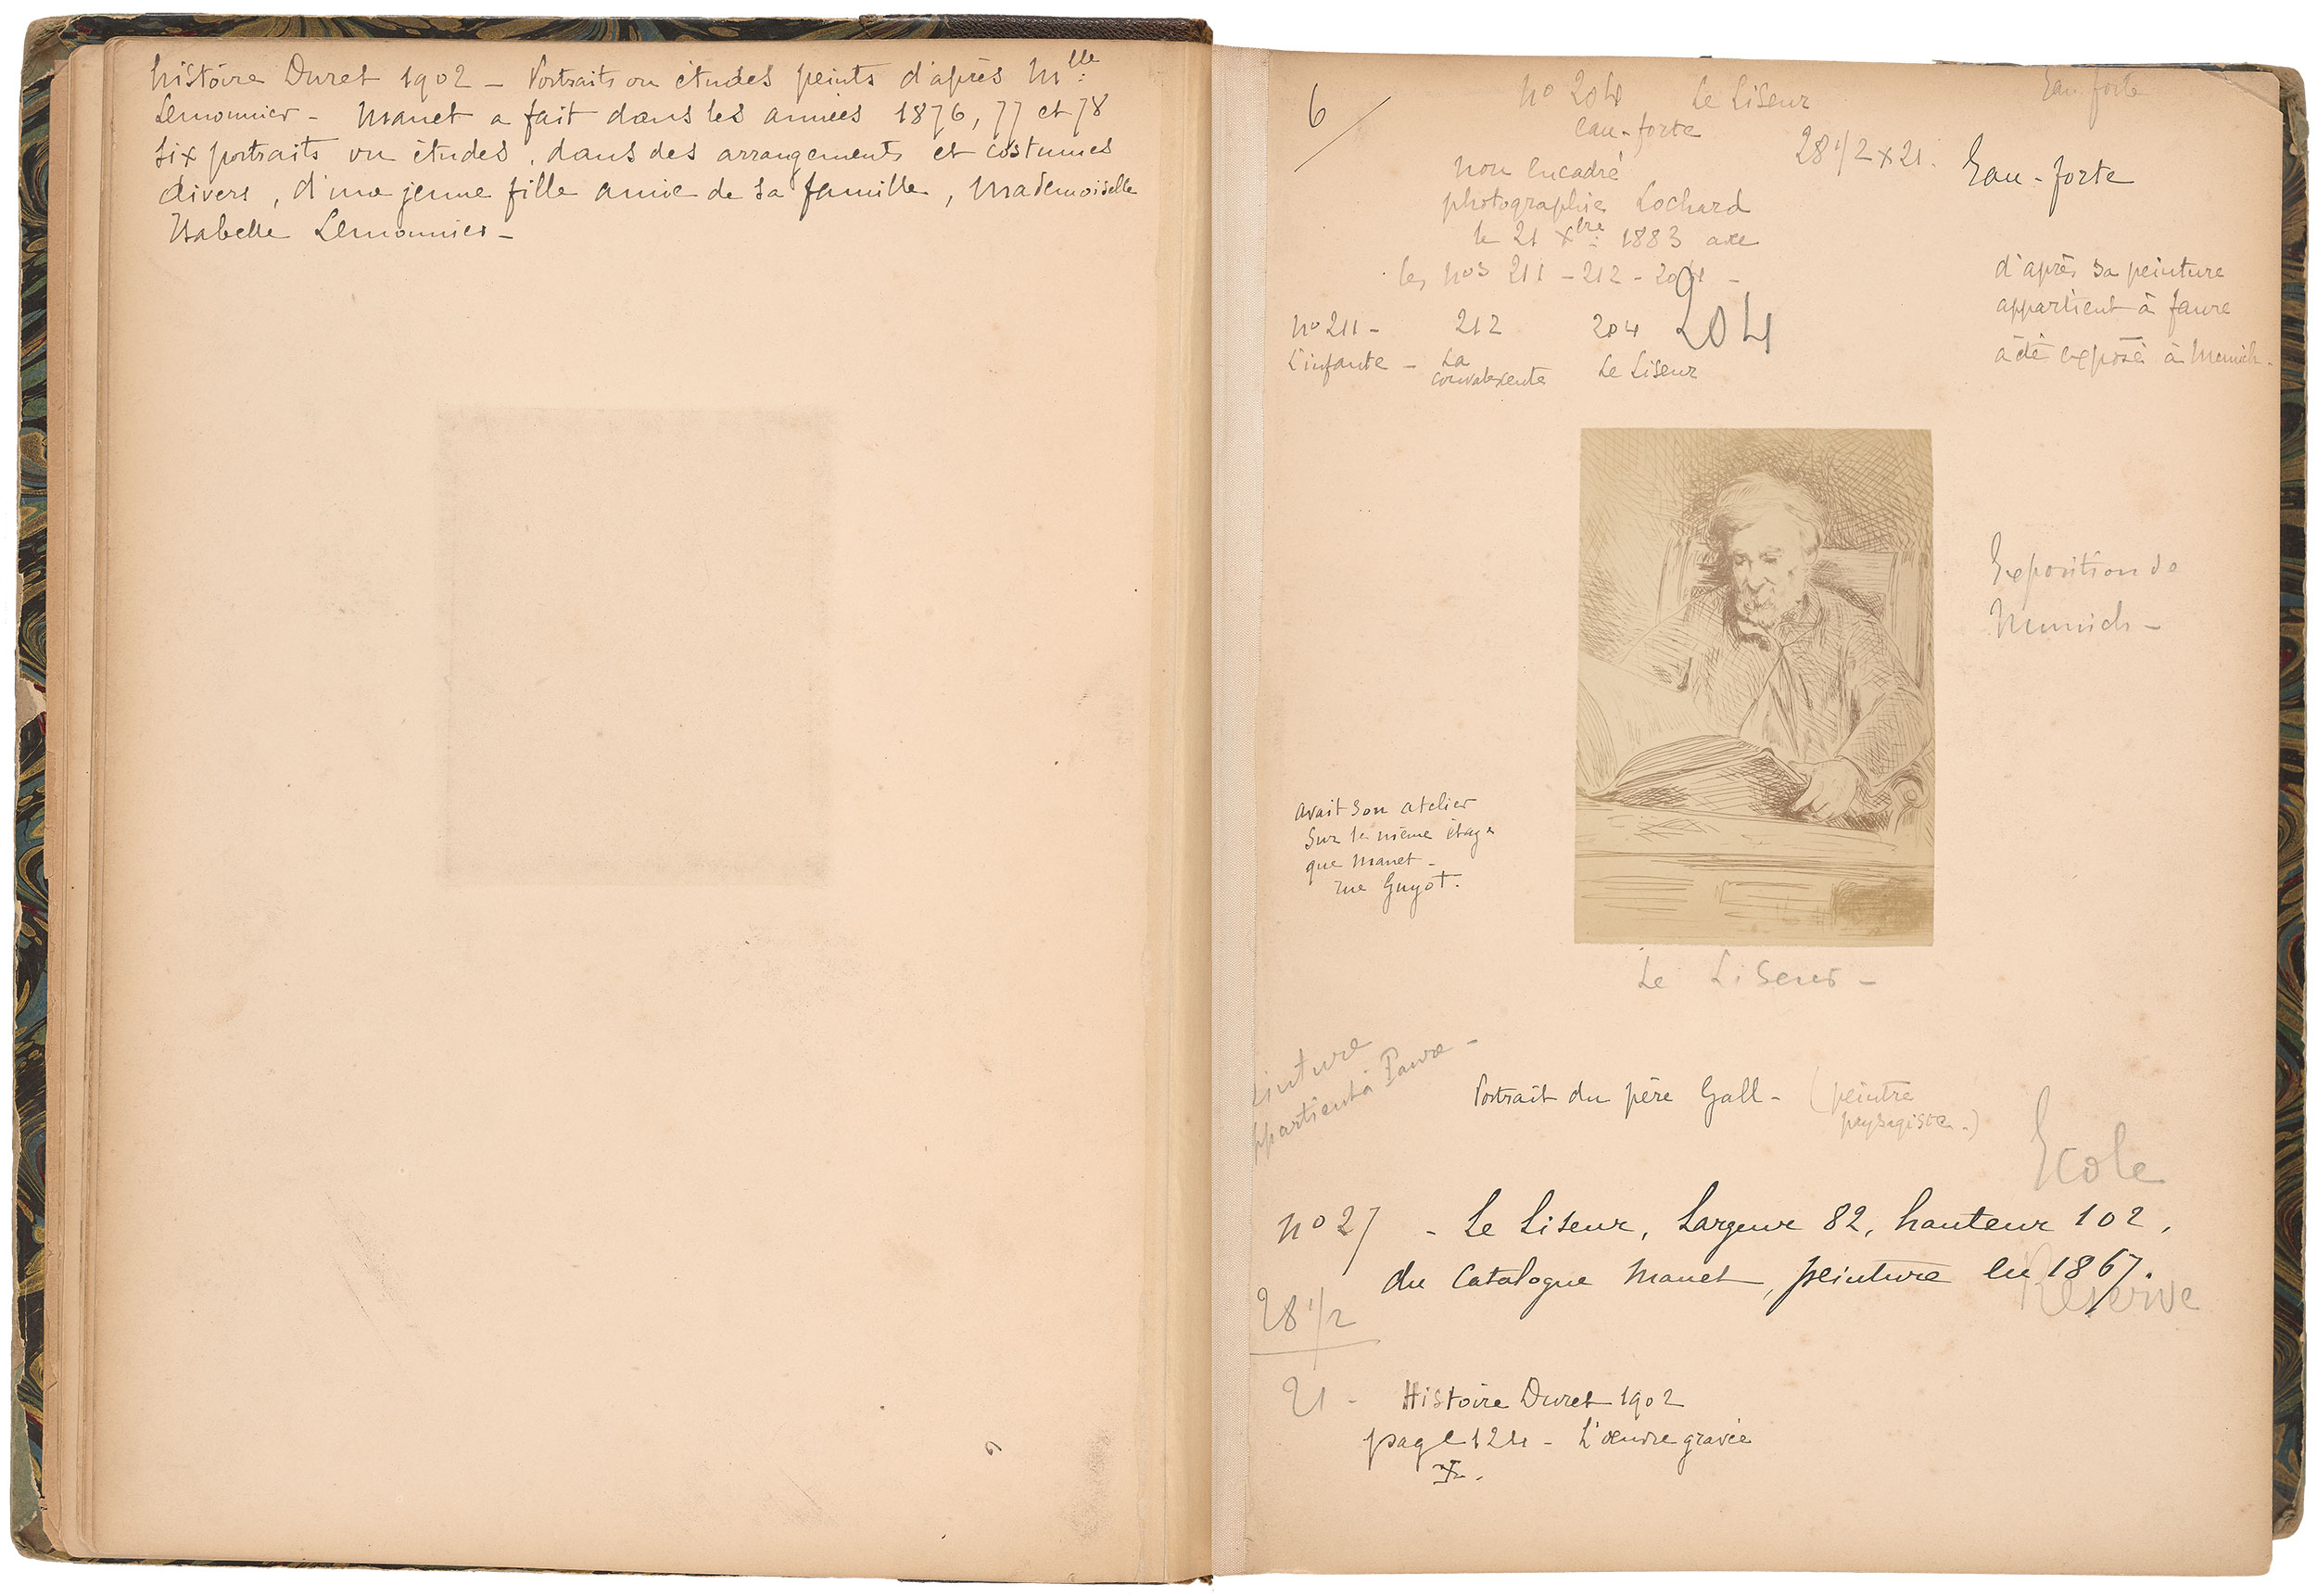 histoire Duret 1902 – Portraits ou études peints d'après Mlle
Lemonnier – Manet a fait dans les années 1876, 77 et 78
six portraits ou études, dans des arrangements et costumes
divers, d'une jeune fille amie de sa famille, Mademoiselle
Isabelle Lemonnier –
6
no 204 Le Liseur
eau-forte
28 1/2 x 21.
Eau forte
Eau-forte
non encadré
photographie Lochard
le 21 Xbre 1883 avec
les nos 211 – 212 – 204 –
204
no 211 – 212 204
L'infante – La convalescente Le Liseur
d'après sa peinture
appartient à Faure
a été exposé à Munich –
Exposition de
Munich –
avait son atelier
sur le même étage
que Manet –
rue Guyot.
Le Liseur –
peinture
appartient à Faure –
Portrait du père Gall – (peintre
paysagiste –)
Ecole
no 27 – Le Liseur, Largeur 82, hauteur 102,
du Catalogue Manet, peinture en 1867.
Réserve
28 1/2
21 –
Histoire Duret 1902
page 124 – L'œuvre gravée